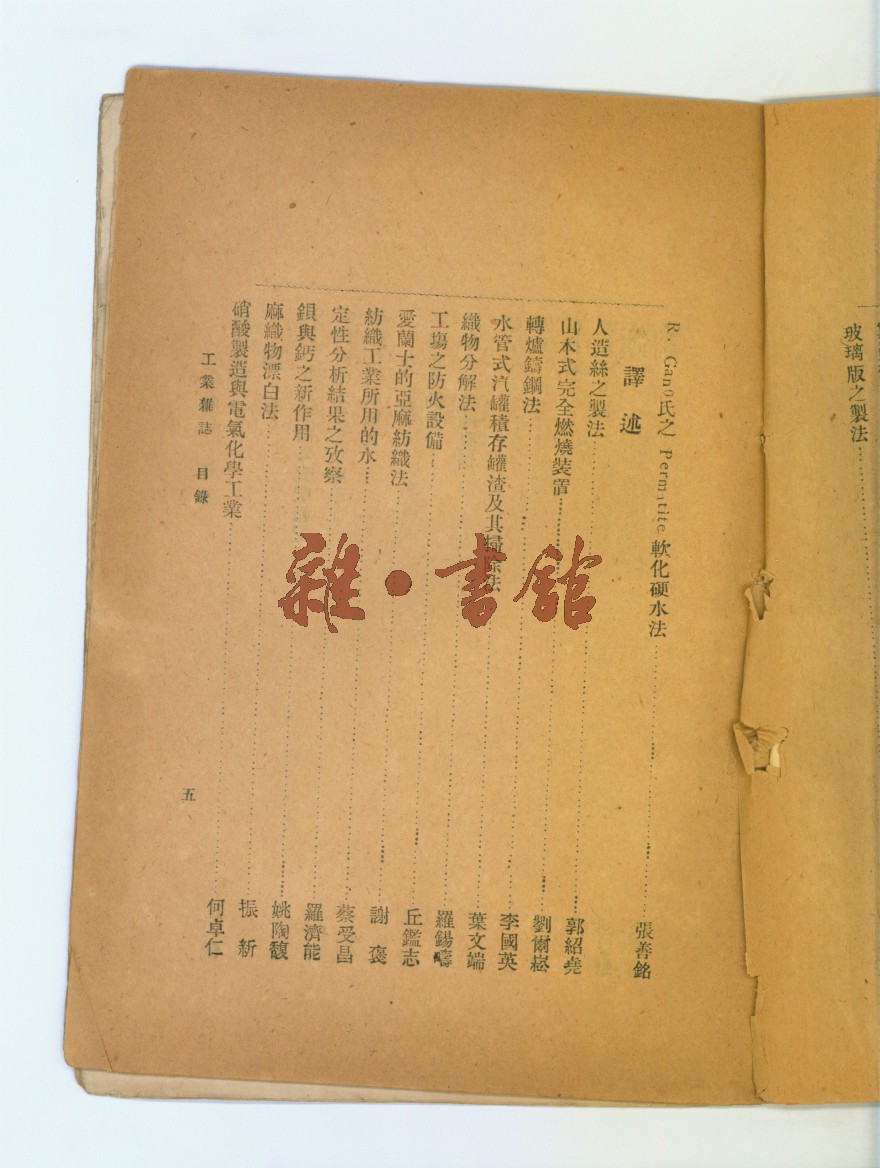 玻璃版之製法……
R. Gano氏之 Permutite 軟化硬水法……張善銘
譯述
人造絲之製法……郭紹堯
山木式完全燃燒裝置……劉爾崧
轉爐鑄鋼法……李國英
水管式汽罐積存罐渣及其掃除法……葉文端
織物分解法……羅錫疇
工塲之防火設備……丘鑑志
愛蘭士的亞麻紡織法……謝褒
紡織工業所用的水……蔡受昌
定性分析結果之攷察……羅濟能
鋇與鈣之新作用……姚陶馥
麻織物漂白法……振新
硝酸製造與電氣化學工業……何卓仁
工業雜誌 目錄 五
雜·書館